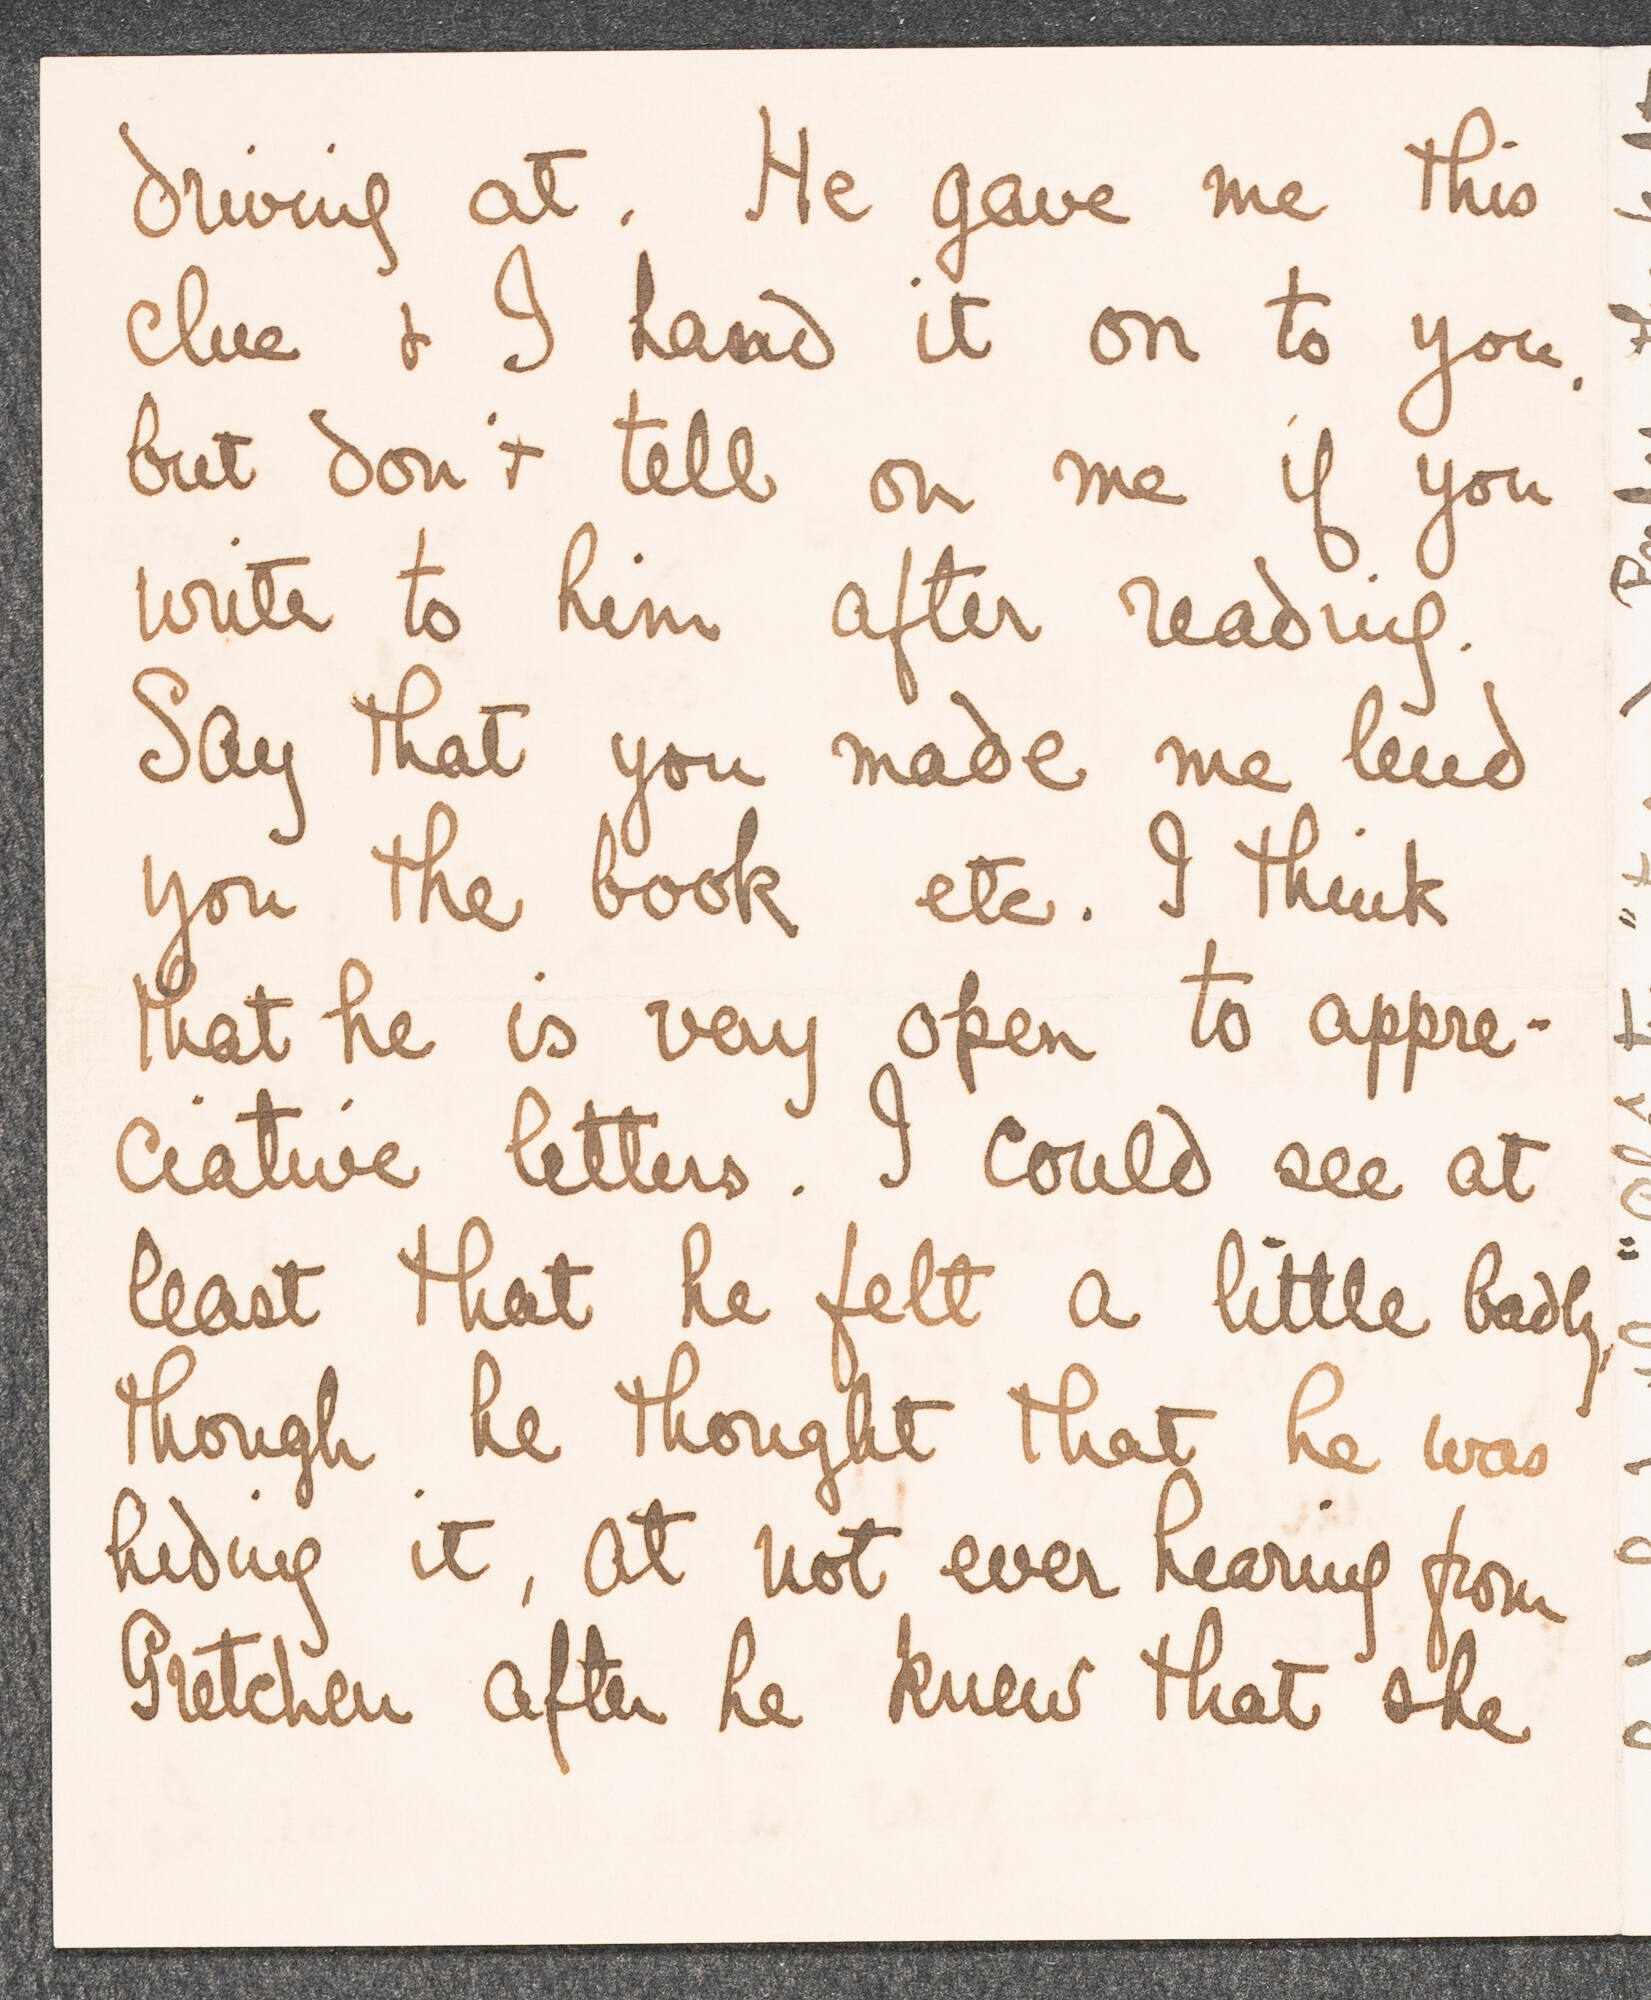 driving at. He gave me this
clue & I hand it on to you,
but don't tell on me if you
write to him after reading.
Say that you made me lend
you the book etc. I think
that he is very open to appre-
ciative letters. I could see at
least that he felt a little badly,
though he thought that he was
hiding it, at not ever hearing from
Gretchen after he knew that she